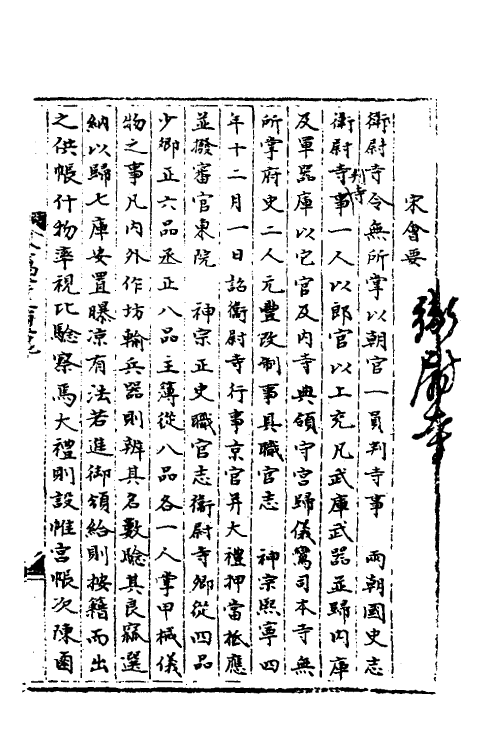 宋會要
衛尉寺
衛尉寺令無所掌以朝官一員判寺事　兩朝國史志
衛尉寺判寺事一人以郎官以上充凡武庫武器並歸內庫
及軍器庫以它官及內寺典領守宮歸儀鸞司本寺無
所掌府史二人元豐改制事具職官志　神宗熙寧四
年十二月一日詔衛尉寺行事京官并大禮押當祗應
並撥審官東院　神宗正史職官志衛尉寺卿從四品
少卿正六品丞正八品主簿從八品各一人掌甲械儀
物之事凡內外作坊輸兵器則辨其名數驗其良窳選
納以歸七庫安置曝凉有法若進御頒給則按籍而出
之供帳什物率視此驗察焉大禮則設帷宮帳次陳鹵